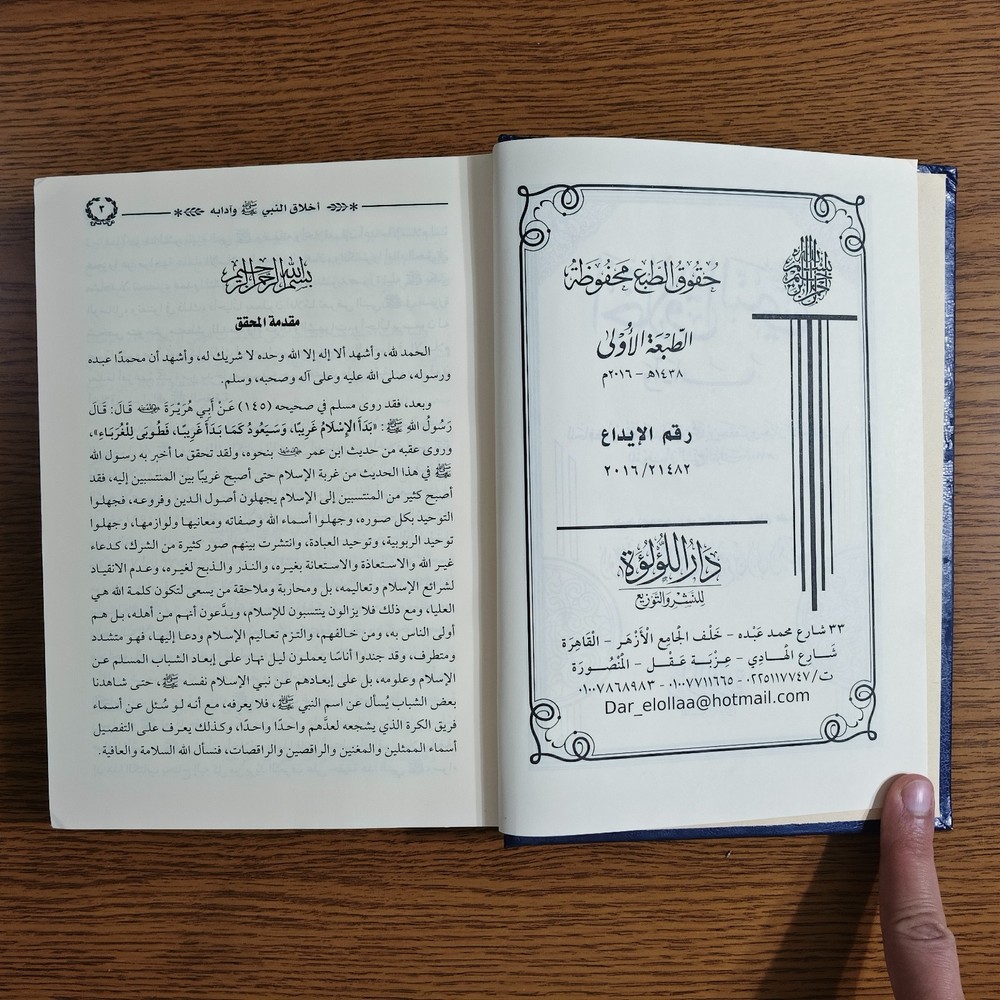 حُقُوقُ الطَّبْعِ مَحْفُوظَةٌ
الطَّبْعَةُ الأُولَى
١٤٣٨هـ - ٢٠١٦م
رقم الإيداع
٢٠١٦/٢١٤٨٢
دَارُ اللُّؤْلُؤَةِ
لِلنَّشْرِ وَالتَّوْزِيعِ
٣٣ شارع محمد عَبْده - خَلْف الجَامِع الْأَزْهَر - الْقَاهِرَة
شَارِع الْهَادِي - عِزْبَة عَقْل - الْمَنْصُورَة
ت/ ٠٢٢٥١١٧٧٤٧ - ٠١٠٠٧٧١١٦٦٥ - ٠١٠٠٧٨٦٨٩٨٣
Dar_elollaa@hotmail.com
أخلاق النبي ﷺ وآدابه
٣
بسم الله الرحمن الرحيم
مقدمة المحقق
الحمد لله، وأشهد ألا إله إلا الله وحده لا شريك له، وأشهد أن محمدًا عبده
ورسوله، صلى الله عليه وعلى آله وصحبه، وسلم.
وبعد، فقد روى مسلم في صحيحه (١٤٥) عَنْ أَبِي هُرَيْرَةَ رضي الله عنه قَالَ: قَالَ
رَسُولُ اللهِ ﷺ: «بَدَأَ الْإِسْلَامُ غَرِيبًا، وَسَيَعُودُ كَمَا بَدَأَ غَرِيبًا، فَطُوبَى لِلْغُرَبَاءِ»،
وروى عقبه من حديث ابن عمر رضي الله عنهما بنحوه، ولقد تحقق ما أخبر به رسول الله
ﷺ في هذا الحديث من غربة الإسلام حتى أصبح غريبًا بين المنتسبين إليه، فقد
أصبح كثير من المنتسبين إلى الإسلام يجهلون أصول الدين وفروعه، فجهلوا
التوحيد بكل صوره، وجهلوا أسماء الله وصفاته ومعانيها ولوازمها، وجهلوا
توحيد الربوبية، وتوحيد العبادة، وانتشرت بينهم صور كثيرة من الشرك، كدعاء
غير الله والاستعاذة والاستعانة بغيره، والنذر والذبح لغيره، وعدم الانقياد
لشرائع الإسلام وتعاليمه، بل ومحاربة وملاحقة من يسعى لتكون كلمة الله هي
العليا، ومع ذلك فلا يزالون ينتسبون للإسلام، ويدَّعون أنهم من أهله، بل هم
أولى الناس به، ومن خالفهم، والتزم تعاليم الإسلام ودعا إليها، فهو متشدد
ومتطرف، وقد جندوا أناسًا يعملون ليل نهار على إبعاد الشباب المسلم عن
الإسلام وعلومه، بل على إبعادهم عن نبي الإسلام نفسه ﷺ، حتى شاهدنا
بعض الشباب يُسأل عن اسم النبي ﷺ، فلا يعرفه، مع أنه لو سُئل عن أسماء
فريق الكرة الذي يشجعه لعدَّهم واحدًا واحدًا، وكذلك يعرف على التفصيل
أسماء الممثلين والمغنين والراقصين والراقصات، فنسأل الله السلامة والعافية.